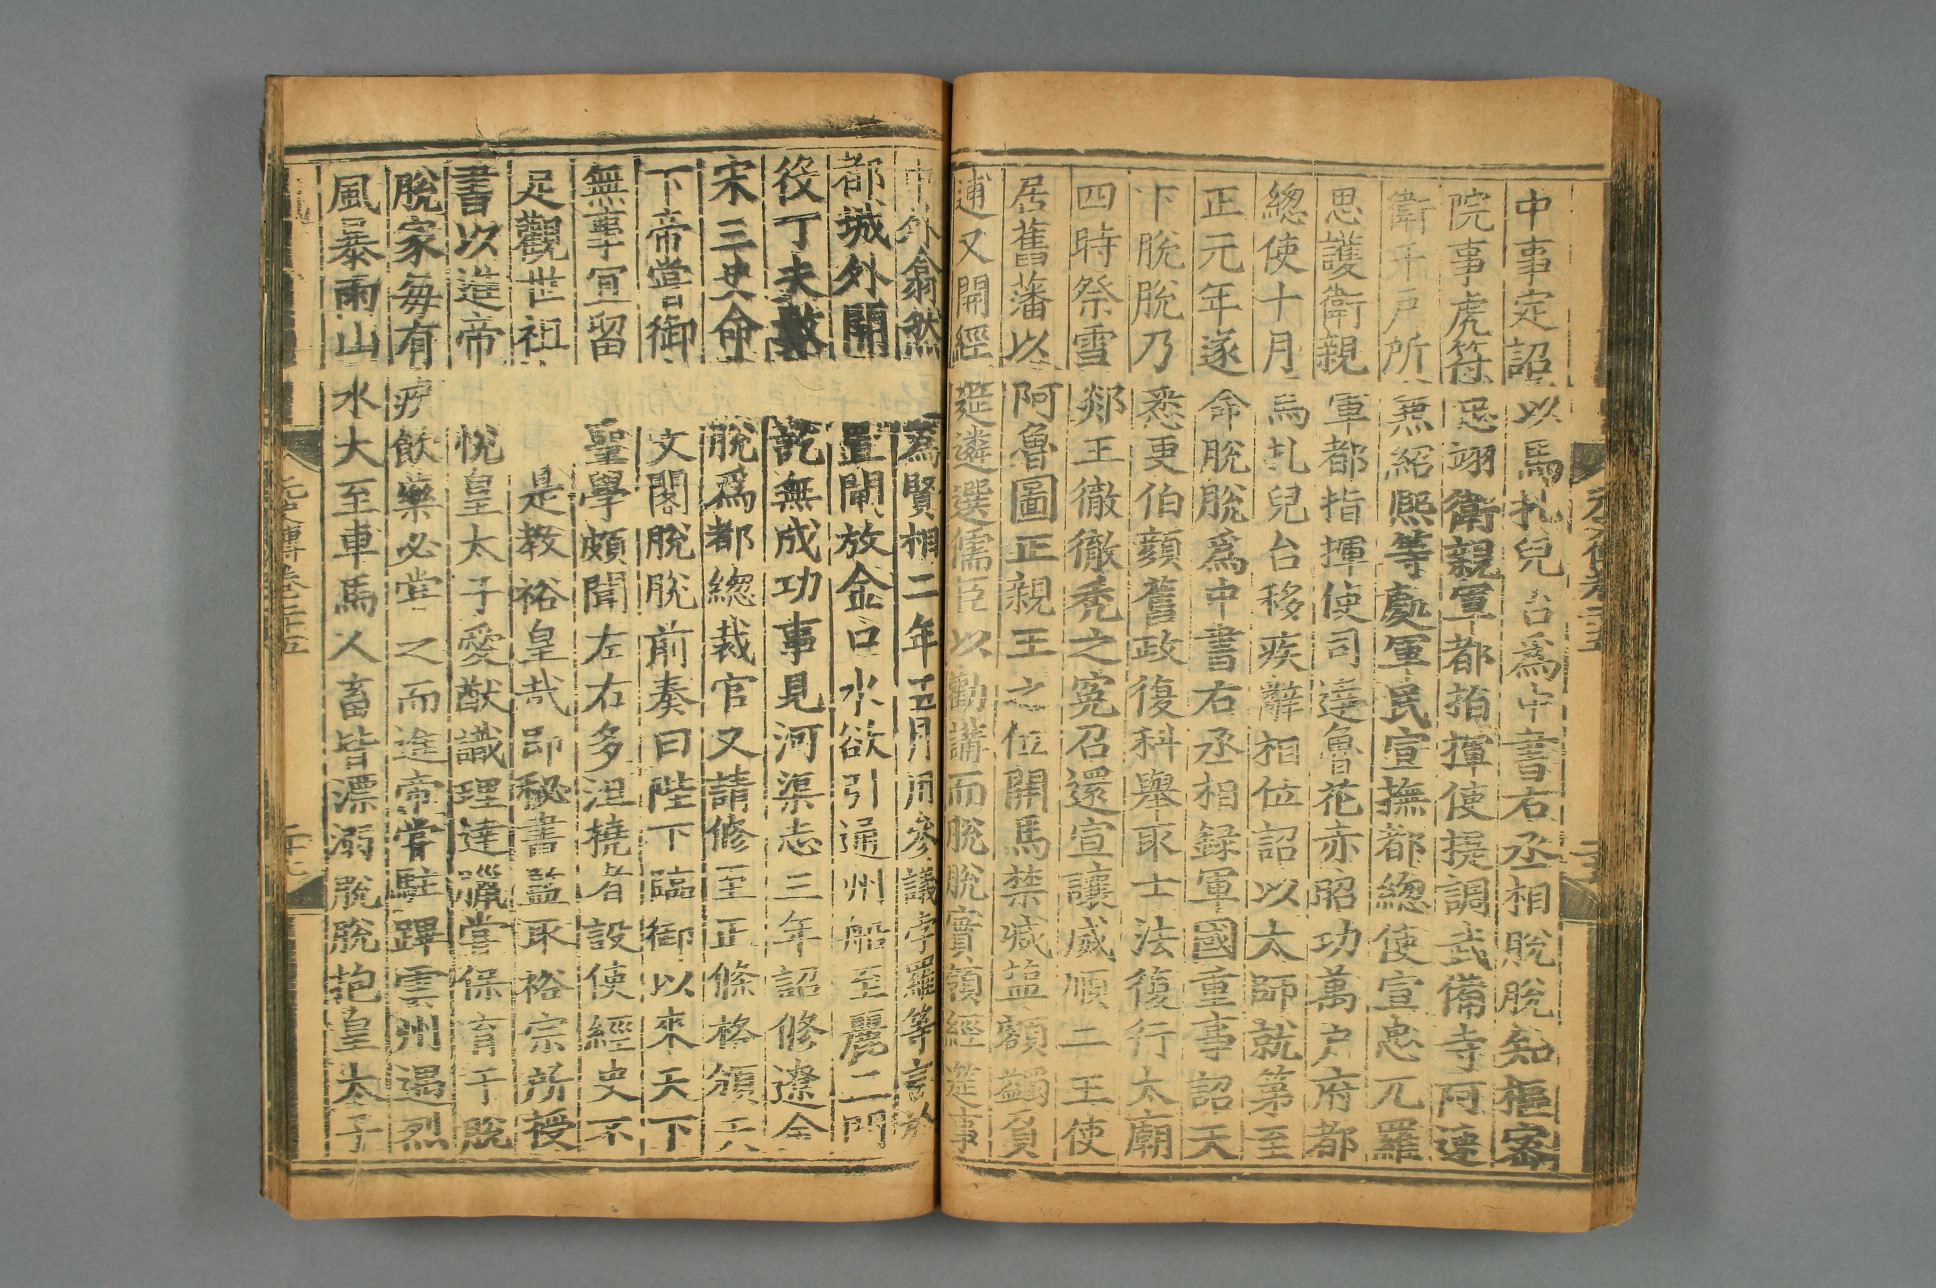 中事定詔以馬扎兒台爲中書右丞相脫脫知樞密
院事虎符忠翊衛親軍都指揮使提調武備寺阿速
衛千戶所兼紹熙等處軍民宣撫都總使宣忠兀羅
思護衛親軍都指揮使司達魯花赤昭功萬戶府都
總使十月馬扎兒台移疾辭相位詔以太師就第至
正元年遂命脫脫爲中書右丞相錄軍國重事詔天
下脫脫乃悉更伯顏舊政復科舉取士法復行太廟
四時祭雪郯王徹徹禿之冤召還宣讓威順二王使
居舊藩以阿魯圖正親王之位開馬禁減鹽額蠲負
逋又開經筵遴選儒臣以勸講而脫脫實領經筵事
中外翕然爲賢相二年五月用參議孛羅等言於
都城外開置閘放金口水欲引通州船至麗二門
役丁夫數訖無成功事見河渠志三年詔修遼金
宋三史命脫爲都總裁官又請修至正條格頒天
下帝嘗御文閣脫脫前奏曰陛下臨御以來天下
無事宜留聖學頗聞左右多沮撓者設使經史不
足觀世祖是教裕皇哉即秘書監取裕宗所授
書以造帝悅皇太子愛猷識理達臘嘗保育于脫
脫家每有疾飲藥必嘗之而進帝嘗駐蹕雲州遇烈
風暴雨山水大至車馬人畜皆漂溺脫脫抱皇太子
元史傳卷二十五